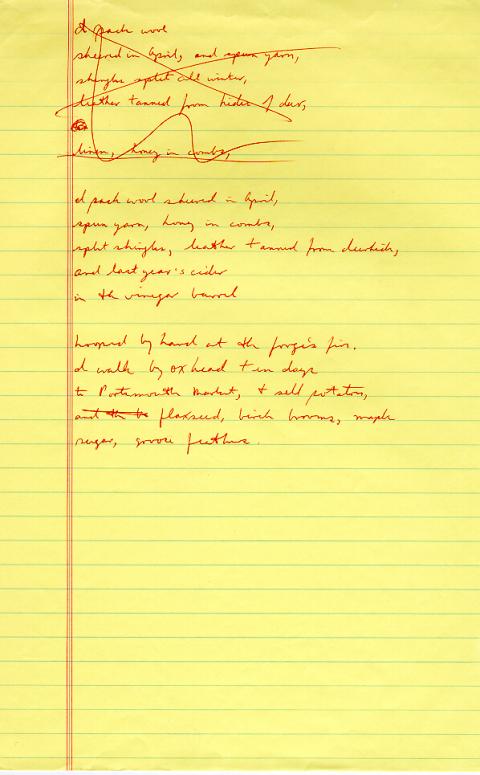 I pack wool
sheered in April, and spun yarn,
shingles split all winter,
leather tanned from hides of deer,
linen, honey in combs,
I pack wool sheered in April,
spun yarn, honey in combs,
split shingles, leather tanned from deerhide,
and last year's cider
in the vinegar barrel
hooped by hand at the forge's fire.
I walk by ox head ten days
to Portsmouth Market, & sell potatoes,
and the flaxseed, birch brooms, maple
sugar, goose feathers.